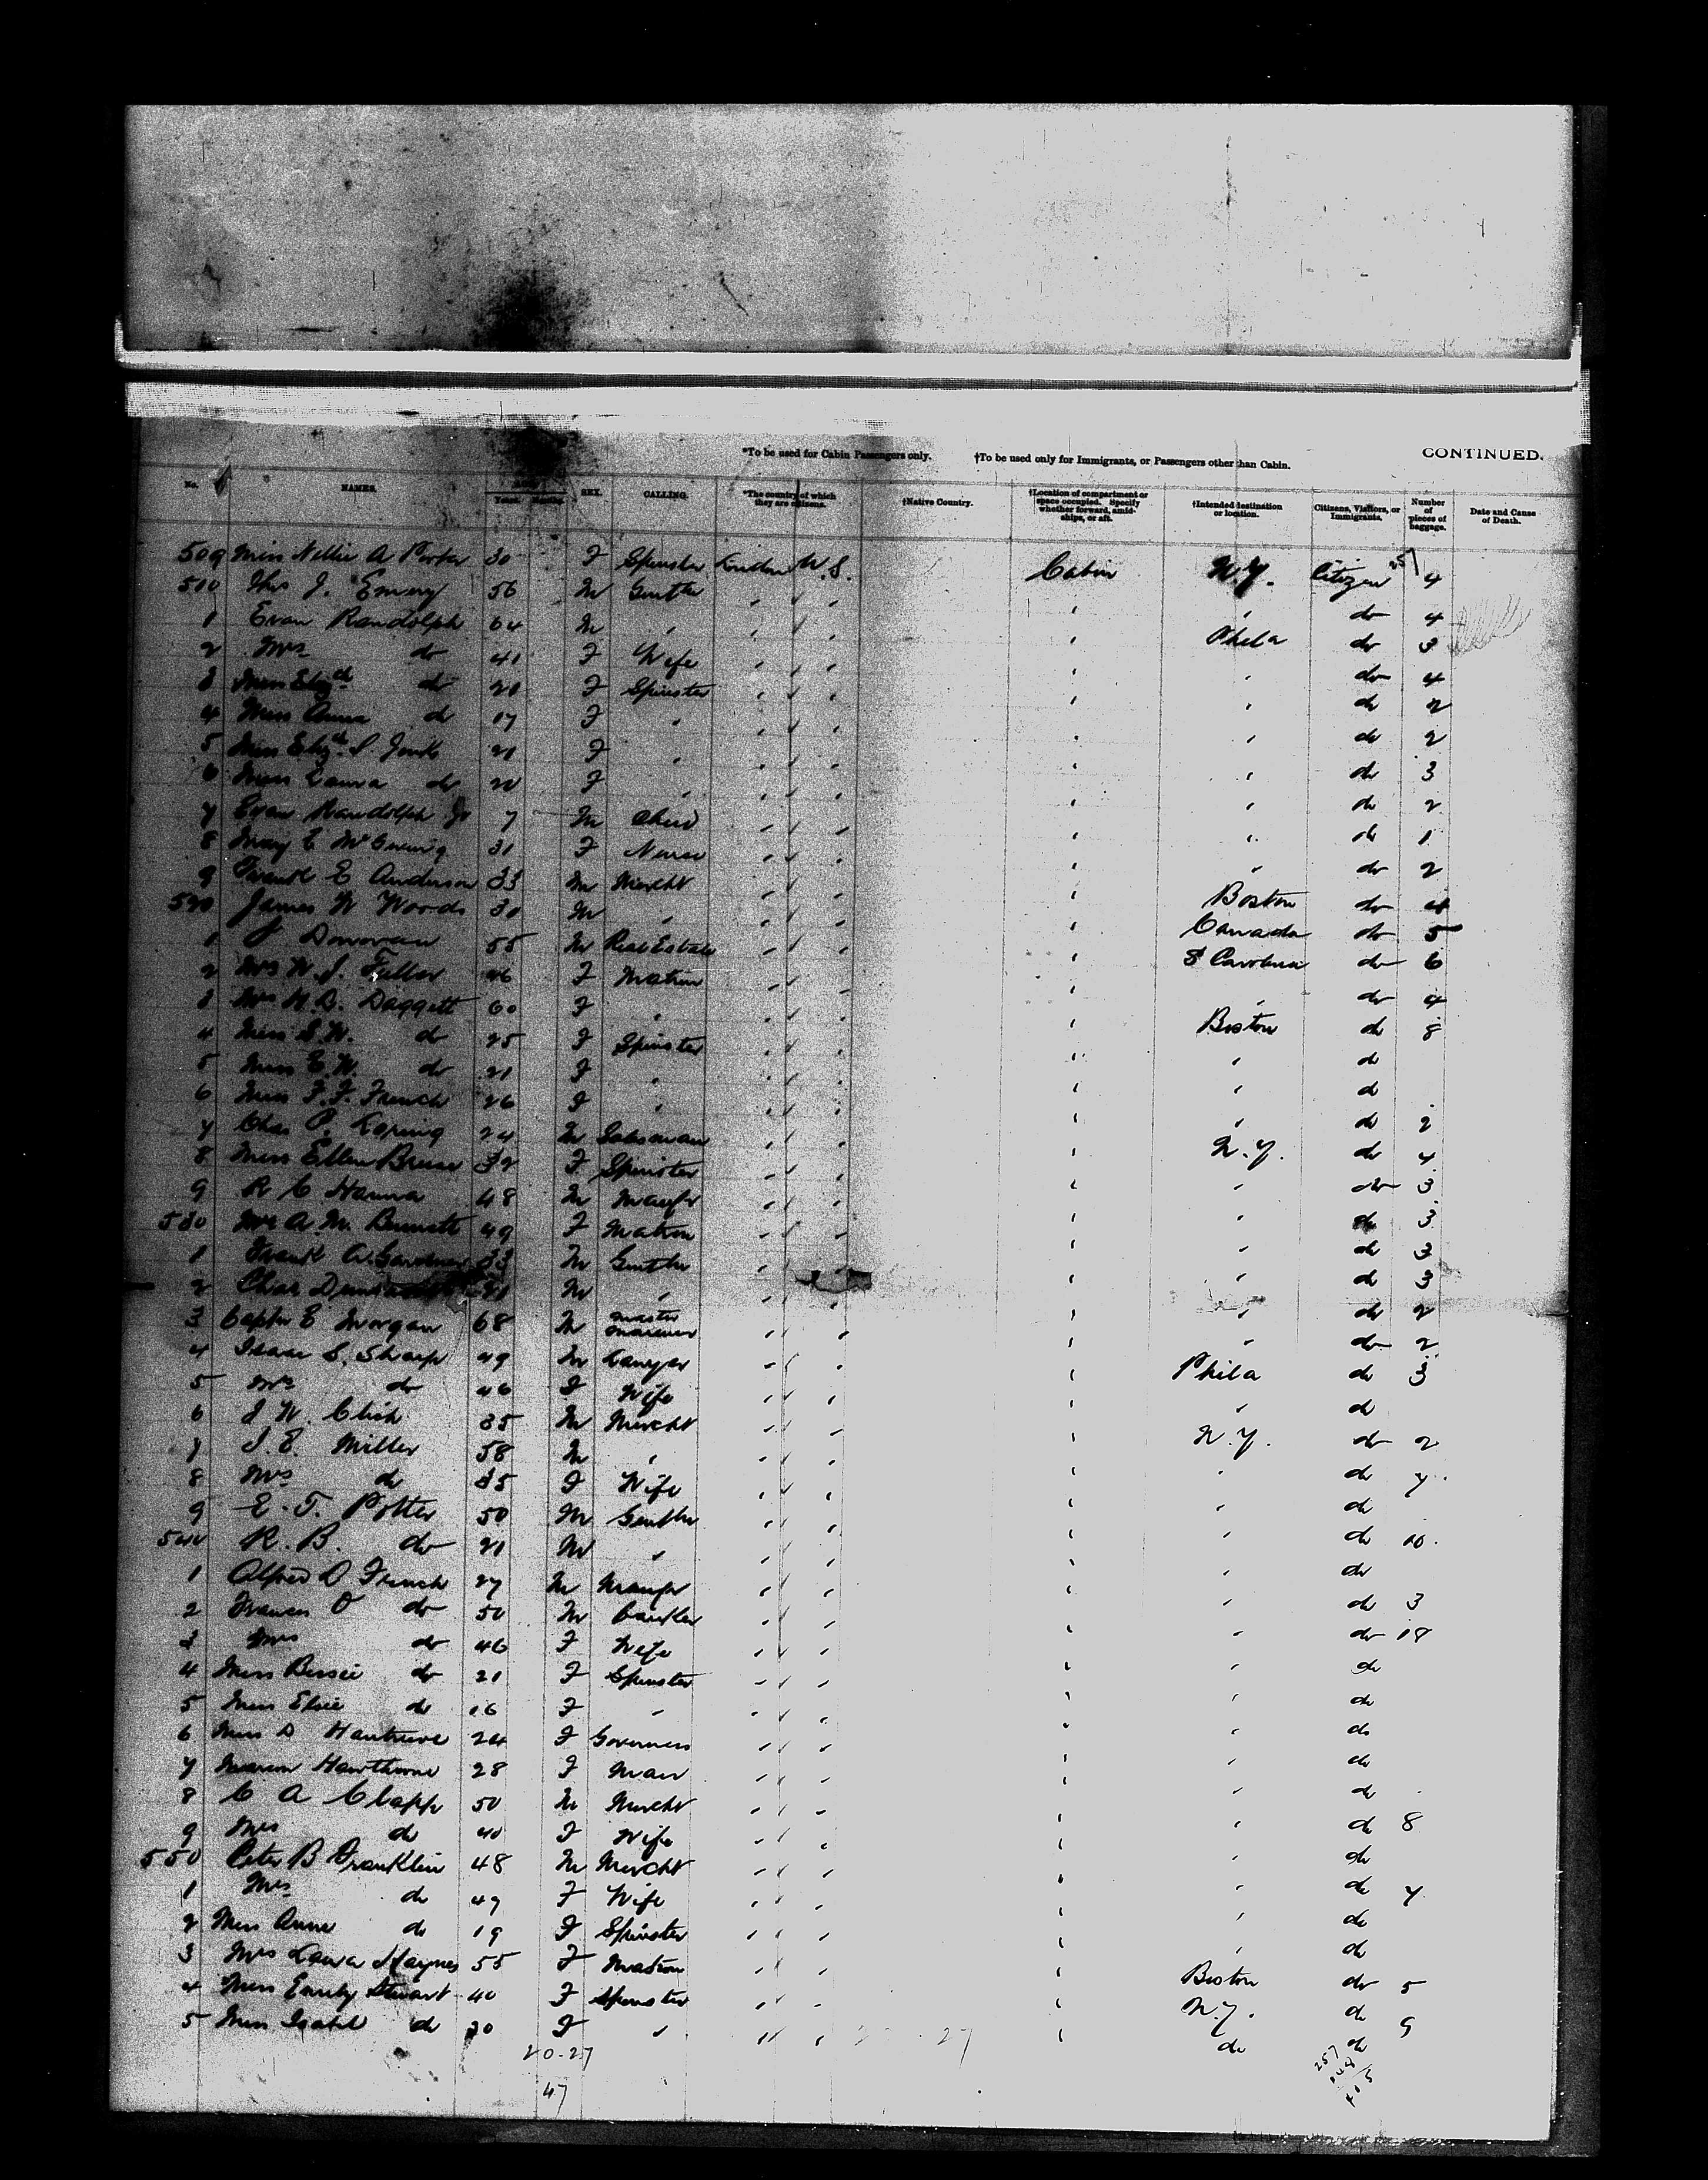 *To be used for Cabin Passengers only. †To be used only for Immigrants, or Passengers other than Cabin. CONTINUED.
No. NAMES. Years. Months. SEX. CALLING. *The country of which they are citizens. †Native Country. †Location of compartment or space occupied. Specify whether forward, amidships, or aft. †Intended destination or location. Citizens, Visitors, or Immigrants. Number of pieces of baggage. Date and Cause of Death.
509 Miss Nellie A 30 F Spinster U.S. Cabin N.Y. Citizen 4
510 Thos J. Emery 56 M Gentln " " " do 4
1 Evan Randolph 64 M " " Phila do 3
2 Mrs do 41 F Wife " " do 4
3 Miss Elizth do 20 F Spinster " " do 2
4 Miss Anna do 17 F " " " do 2
5 Miss Elizth S 21 F " " " do 3
6 Miss Laura do 20 F " " " do 2
7 Evan Randolph Jr 7 M Child " " do 1
8 May E 31 F Nurse " " do 2
9 Frank E Anderson 33 M Mercht " Boston do 4
520 James W Woods 30 M " " Canada do 5
1 J Donovan 55 M Real Estate " S Carolina do 6
2 Mrs W. J. 46 F Matron " " do 4
3 Mrs W. B. Daggett 60 F " " Boston do 8
4 Miss S. W. do 25 F Spinster " " do
5 Miss E. W. do 21 F " " " do
6 Miss F. F. French 26 F " " " do 2
7 Chas P. Loring 24 M Salesman " N.Y. do 4
8 Miss Ellen 32 F Spinster " " do 3
9 R C Hanna 48 M Manfr " " do 3
530 Mrs A. M. 49 F Matron " " do 3
1 Frank A. 33 M Gentln " " do 3
2 Chas M " " " do 2
3 Captn E Morgan 68 M Master Mariner " " do 2
4 Isaac S. Sharp 49 M Lawyer " Phila do 3
5 Mrs do 46 F Wife " " do
6 J W. 35 M Mercht " N.Y. do 2
7 J. E. Miller 58 M " " " do 7
8 Mrs do 35 F Wife " " do
9 E. T. Potter 50 M Gentln " " do 10
540 R. B. do 21 M " " " do
1 Alfred D French 27 M Manfr " " do 3
2 Frances O do 50 M Banker " " do 18
3 Mrs do 46 F Wife " " do
4 Miss Bessie do 21 F Spinster " " do
5 Miss Elsie do 16 F " " " do
6 Miss D 24 F Governess " " do
7 Marion Hawthorne 28 F " " do
8 C A Clapp 50 M Mercht " " do 8
9 Mrs do 40 F Wife " " do
550 Peter B Franklin 48 M Mercht " " do 7
1 Mrs do 47 F Wife " " do
2 Miss Anne do 19 F Spinster " " do
3 Mrs Laura Haynes 55 F Matron " Boston do 5
4 Miss Emily Stewart 40 F Spinster " N.Y. do 9
5 Miss Isabel do 30 F " " do do
20-27
47